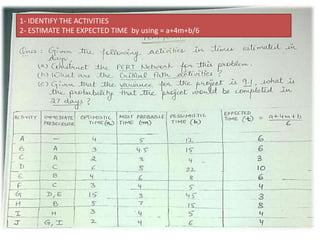 1- IDENTIFY THE ACTIVITIES
2- ESTIMATE THE EXPECTED TIME by using = a+4m+b/6
Ques:- Given the following activities in times estimated in
days.
(a) Construct the PERT Network for this problem.
(b) What are the Critical Path activities?
(c) Given that the variance for the project is 9.1, what is
the probability that the project would be completed in
27 days?
ACTIVITY IMMEDIATE PREDECESSOR OPTIMISTIC TIME(a) MOST PROBABLE TIME (m) PESSIMISTIC TIME (b) EXPECTED TIME (t) = a+4m+b/6
A - 4 5 12 6
B A 3 4.5 15 6
C A 2 3 4 3
D C 6 8 22 10
E B 4 6 8 6
F C 3 4 5 4
G D, E 15 3 45 3
H B 5 7 15 8
I H 3 4 5 4
J G, I 2 4 6 4